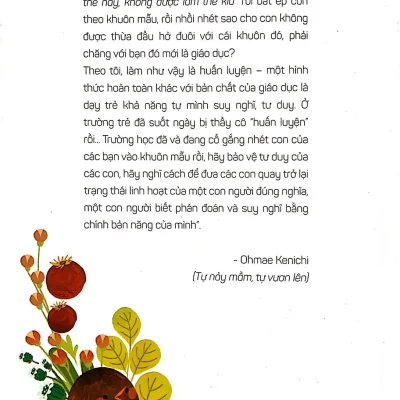 thế này, không được làm thế kia" rồi bắt ép con
theo khuôn mẫu, rồi nhồi nhét sao cho con không
được thừa đầu hở đuôi với cái khuôn đó, phải
chăng với bạn đó mới là giáo dục?
Theo tôi, làm như vậy là huấn luyện – một hình
thức hoàn toàn khác với bản chất của giáo dục là
dạy trẻ khả năng tự mình suy nghĩ, tư duy. Ở
trường trẻ đã suốt ngày bị thầy cô "huấn luyện"
rồi... Trường học đã và đang cố gắng nhét con của
các bạn vào khuôn mẫu rồi, hãy bảo vệ tư duy của
các con, hãy nghĩ cách để đưa các con quay trở lại
trạng thái linh hoạt của một con người đúng nghĩa,
một con người biết phán đoán và suy nghĩ bằng
chính bản năng của mình".
- Ohmae Kenichi
(Tự nảy mầm, tự vươn lên)